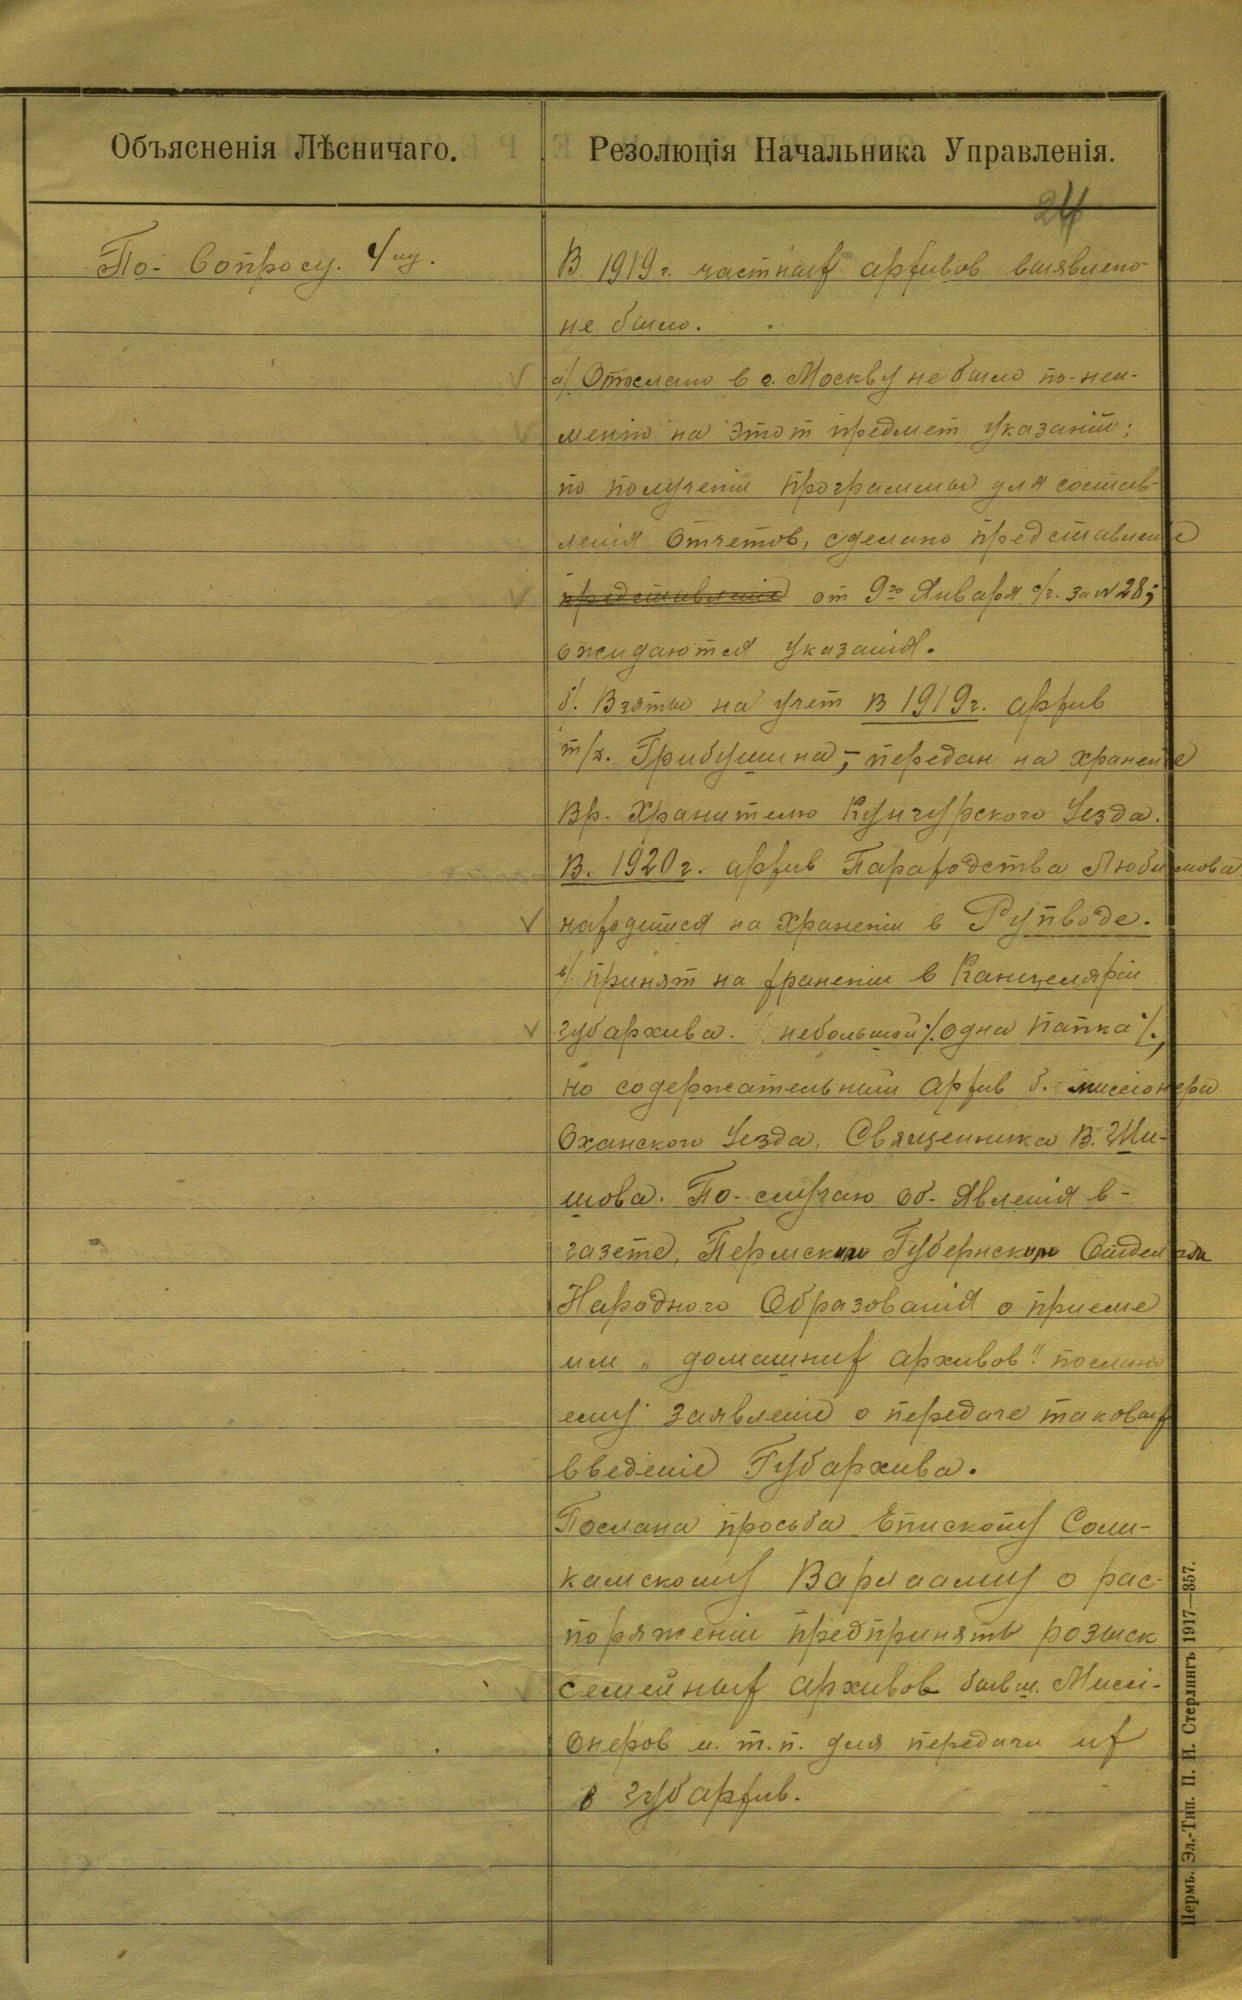 Объясненія Лѣсничаго.
Резолюція Начальника Управленія.
24
По- вопросу. 4му.
В 1919 г. частных архивов выявлено-
не было.
а/. Отослано в г. Москву не было по-неи-
менію на этот предмет указаній;
по полученіи программы для состав-
ленія отчетов, сделано представленіе
представленіе от 9го Января с/г. за № 28;
ожидаются указанія.
б/. Взяты на учет в 1919 г. архив
т/д. Грибушина, - передан на храненіе
Вр. Хранителю Кунгурского Уезда.
В. 1920 г. архив Параходства Любимова
находится на храненіи в Рупводе.
в/. принят на храненіи в Канцеляріи
губархива. небольшой /. одна папка /.,
но содержательный архив б. миссіонера
Оханского Уезда, Священника В. Ши-
шова. По- случаю об- явленія в-
газете, Пермским Губернским Отделом
Народного Образованія о приеме
им „ домашних архивов" послано
ему заявленіе о передаче таковых
введеніе Губархива.
Послана просьба Епископу Соли-
камскому Варлааму о рас-
поряженіи предпринять розыск
семейных архивов бывш. Миссі-
онеров и. т. п. для передачи их
в губархив.
Пермь. Эл.-Тип. П. И. Стерлингъ 1917—357.